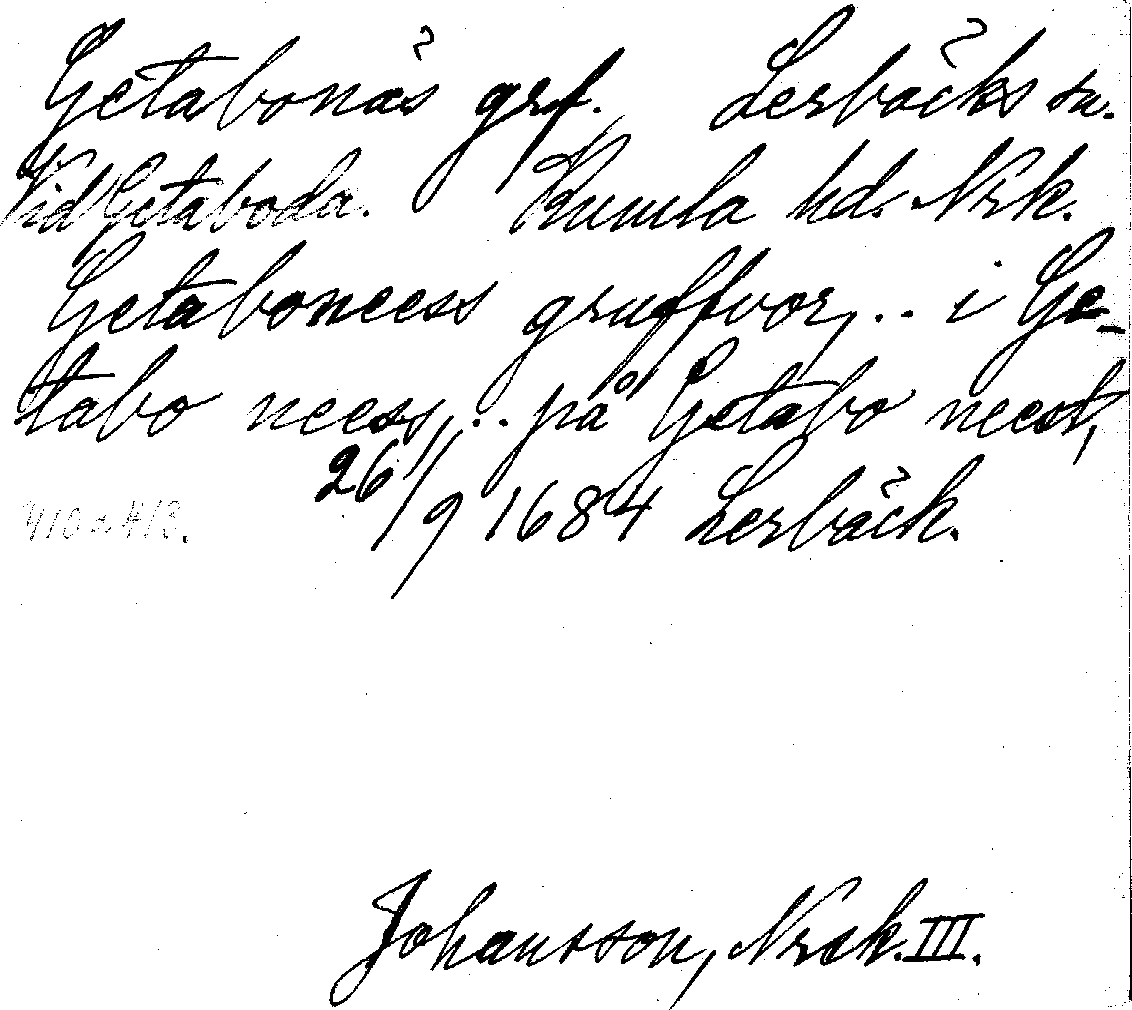 Getabonäs grf. Lerbäcks sn.
Vid Getaboda. Kumla hd. Nrk.
Getaboneess gruffvor, .. i Ge-
tabo neess, .. på Getabo neest,
26/9 1684 Lerbäck.
410 a 413.
Johansson, Nrck. III.